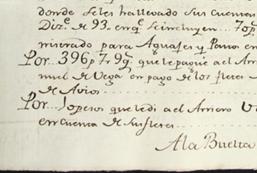 donde seles ha llevado sus cuentas
Diz.e de 93 en q.e Se incluyen 70p
ministrado para Aguajes y Pano en
Por 396p 7r 9g que le pague a el Ar
mul de Vega en pago de los fletes
de Avios
Por 10 pesos que le di a el Arriero
en cuenta de sus fletes
A la Buelta